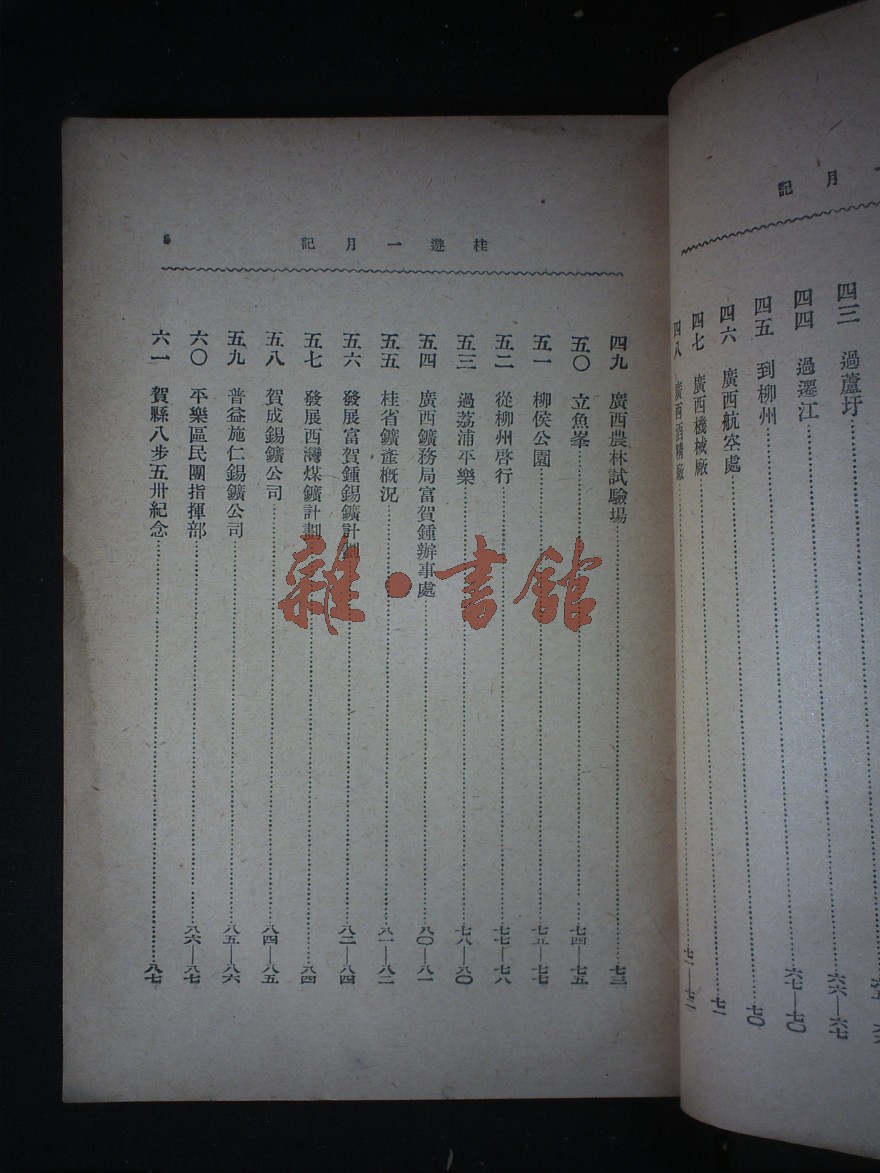 月記
四三 過蘆圩 六六—六七
四四 過遷江 六七—七〇
四五 到柳州 七〇
四六 廣西航空處 七一
四七 廣西機械廠
四八 廣西酒精廠
桂遊一月記
四九 廣西農林試驗場 七三
五〇 立魚峯 七四—七五
五一 柳侯公園 七五—七七
五二 從柳州啓行 七七—七八
五三 過荔浦平樂 七八—八〇
五四 廣西鑛務局富賀鍾辦事處 八〇—八一
五五 桂省鑛產概况 八一—八二
五六 發展富賀鍾錫鑛計劃 八二—八四
五七 發展西灣煤鑛計劃 八四
五八 賀成錫鑛公司 八四—八五
五九 普益施仁錫鑛公司 八五—八六
六〇 平樂區民團指揮部 八六—八七
六一 賀縣八步五卅紀念 八七
雜·書館